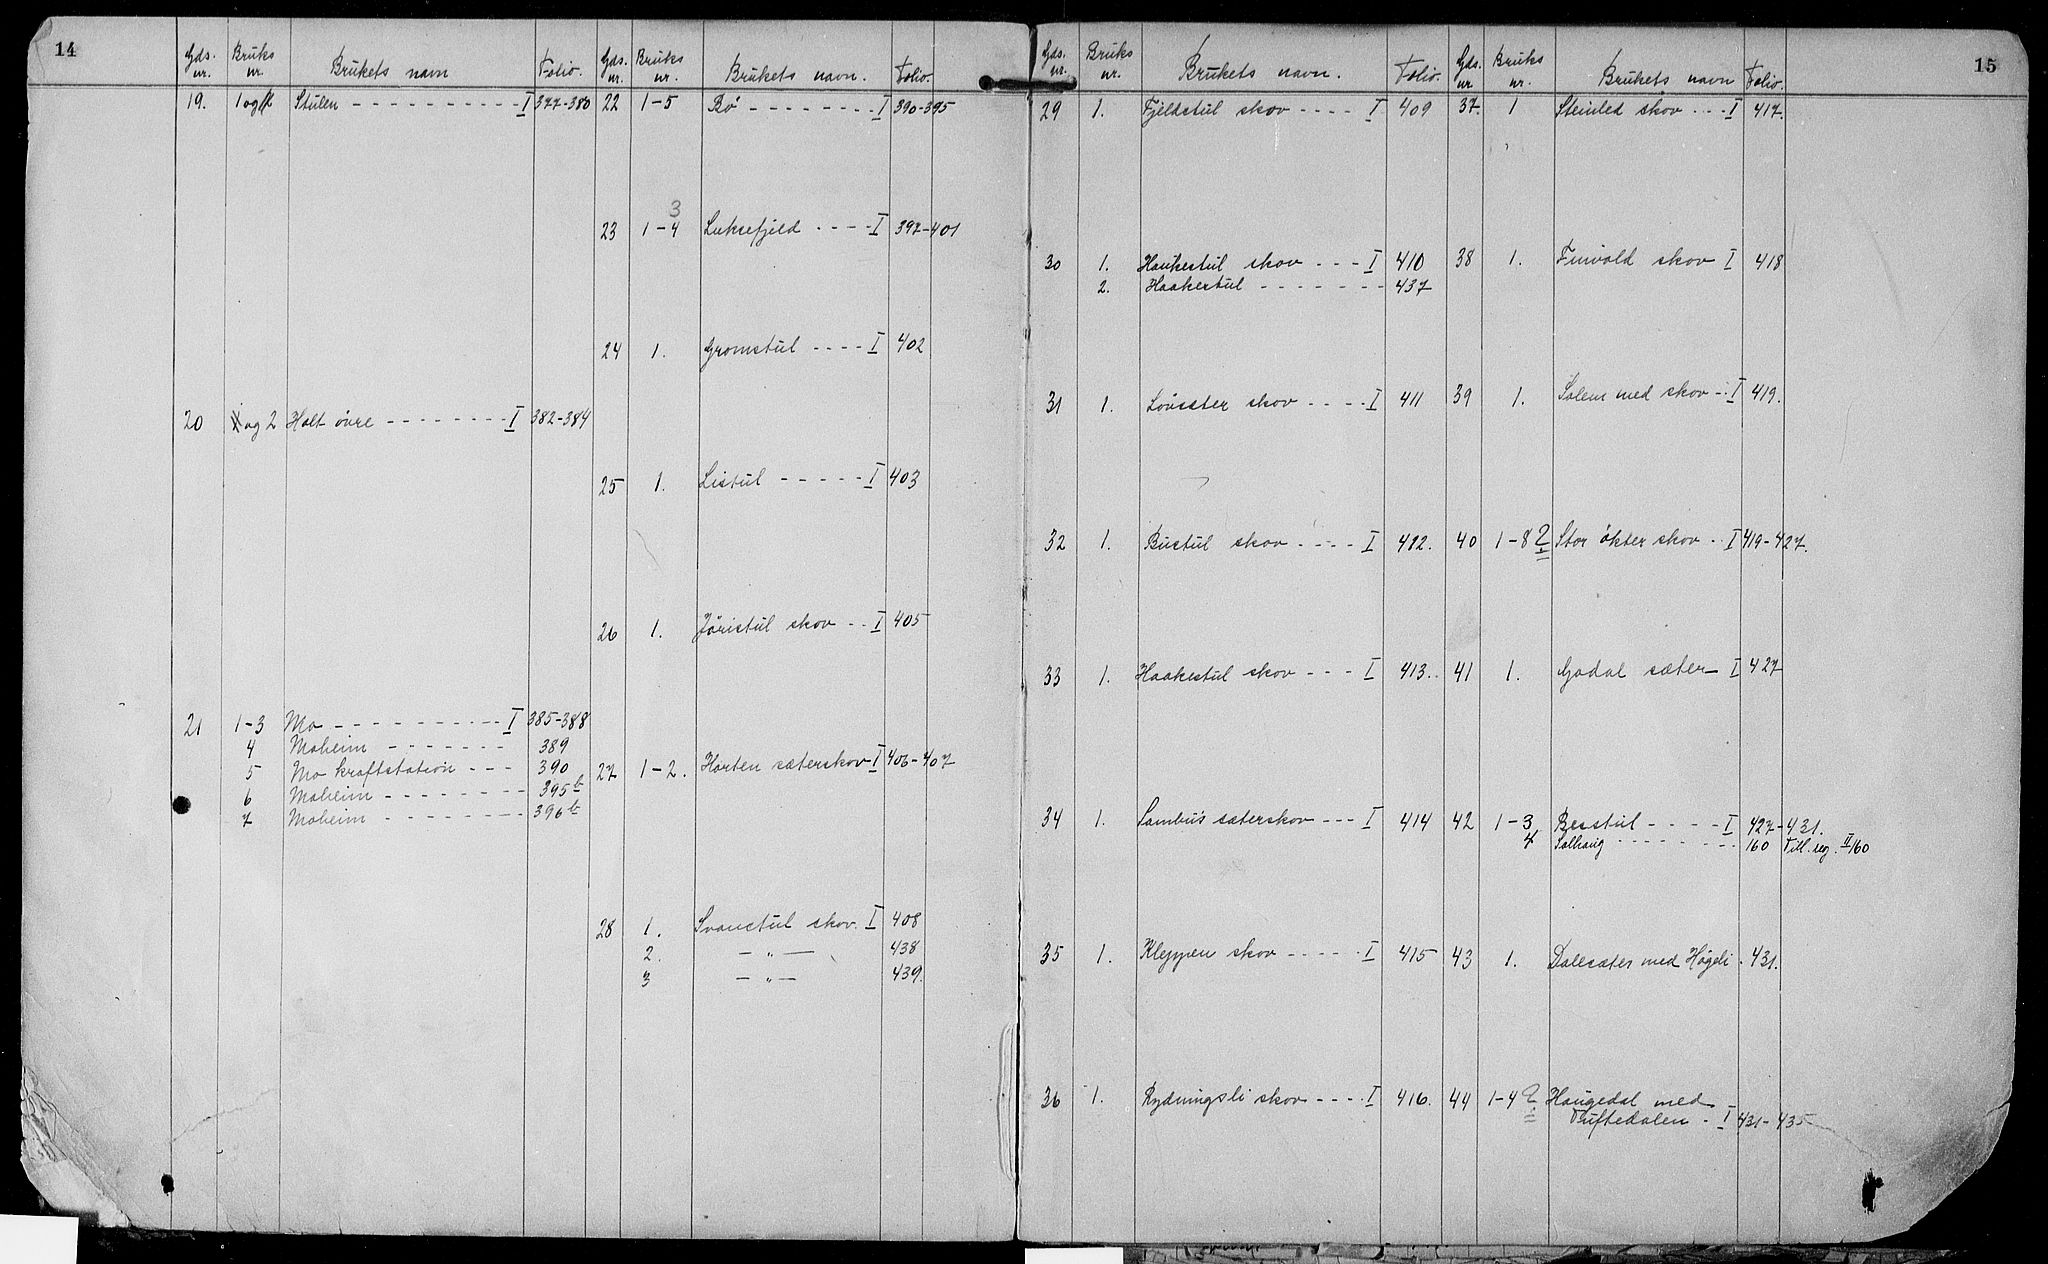 14
Gds. nr. Bruks nr. Brukets navn Folio. Gds. nr. Bruks nr. Brukets navn. Folio.
19. 1 og 2 Stulen - - - - - - - - - - I 377-380
20 1 og 2 Holt övre - - - - - - - - I 382-384
21 1-3 Mo - - - - - - - - - - I 385-388
4 Moheim - - - - - - - 389
5 Mo kraftstation - - - 390
6 Moheim - - - - - - - - 395b
7 Moheim - - - - - - - - 396b
22 1-5 Bö - - - - - - - - I 390-395
3
23 1-4 Luksefjeld - - - - I 397-401
24 1. Gromstul - - - - I 402
25 1. Listul - - - - - I 403
26 1. Jöristul skov - - I 405
27 1-2. Horten sæterskov I 406-407
28 1. Svanstul skov. I 408
2. - „ - 438
3 - „ - 439.
15
Gds. nr. Bruks nr. Brukets navn. Folio. Gds. nr Bruks nr. Brukets navn Folio.
29 1. Fjeldstul skov - - - - I 409
30 1. Haukestul skov - - - I 410
2. Haakestul - - - - - - - 437
31 1. Lövsæter skov - - - - I 411
32 1. Bustul skov - - - - I 412.
33 1. Haakestul skov - - - I 413.
34 1. Sambus sæterskov - - - I 414
35 1. Kleppen skov - - - - - I 415
36 1. Rydningsli skov - - - - I 416.
37. 1 Steinled skov - - - I 417.
38 1. Finvold skov I 418
39 1. Solem med skov - - I 419.
40 1-8 ? Stor ökter skov - - I 419-427.
41 1. Godal sæter I 427
42 1-3 Besstul - - - - I 427-431.
4 Solhaug - - - - - - - - 160 Till. reg. II 160
43 1. Dalsæter med Högeli . 431.
44 1-4 ? Haugedal med
Tuftedalen - I 431-435